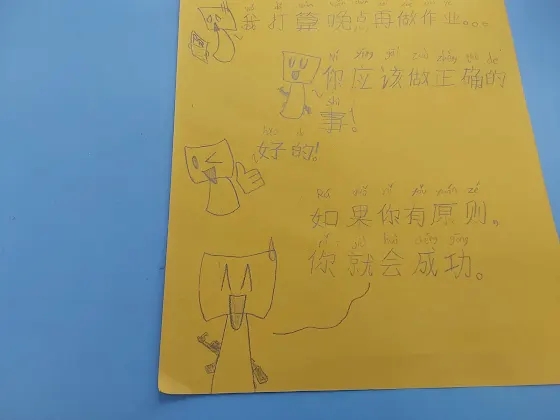 我打算晚点再做作业。。。
nǐ yīng gāi zuò zhèng què de
你应该做正确的
shì
事!
hǎo de
好的!
rú guǒ nǐ yǒu yuán zé
如果你有原则。
nǐ jiù huì chéng gōng
你就会成功。